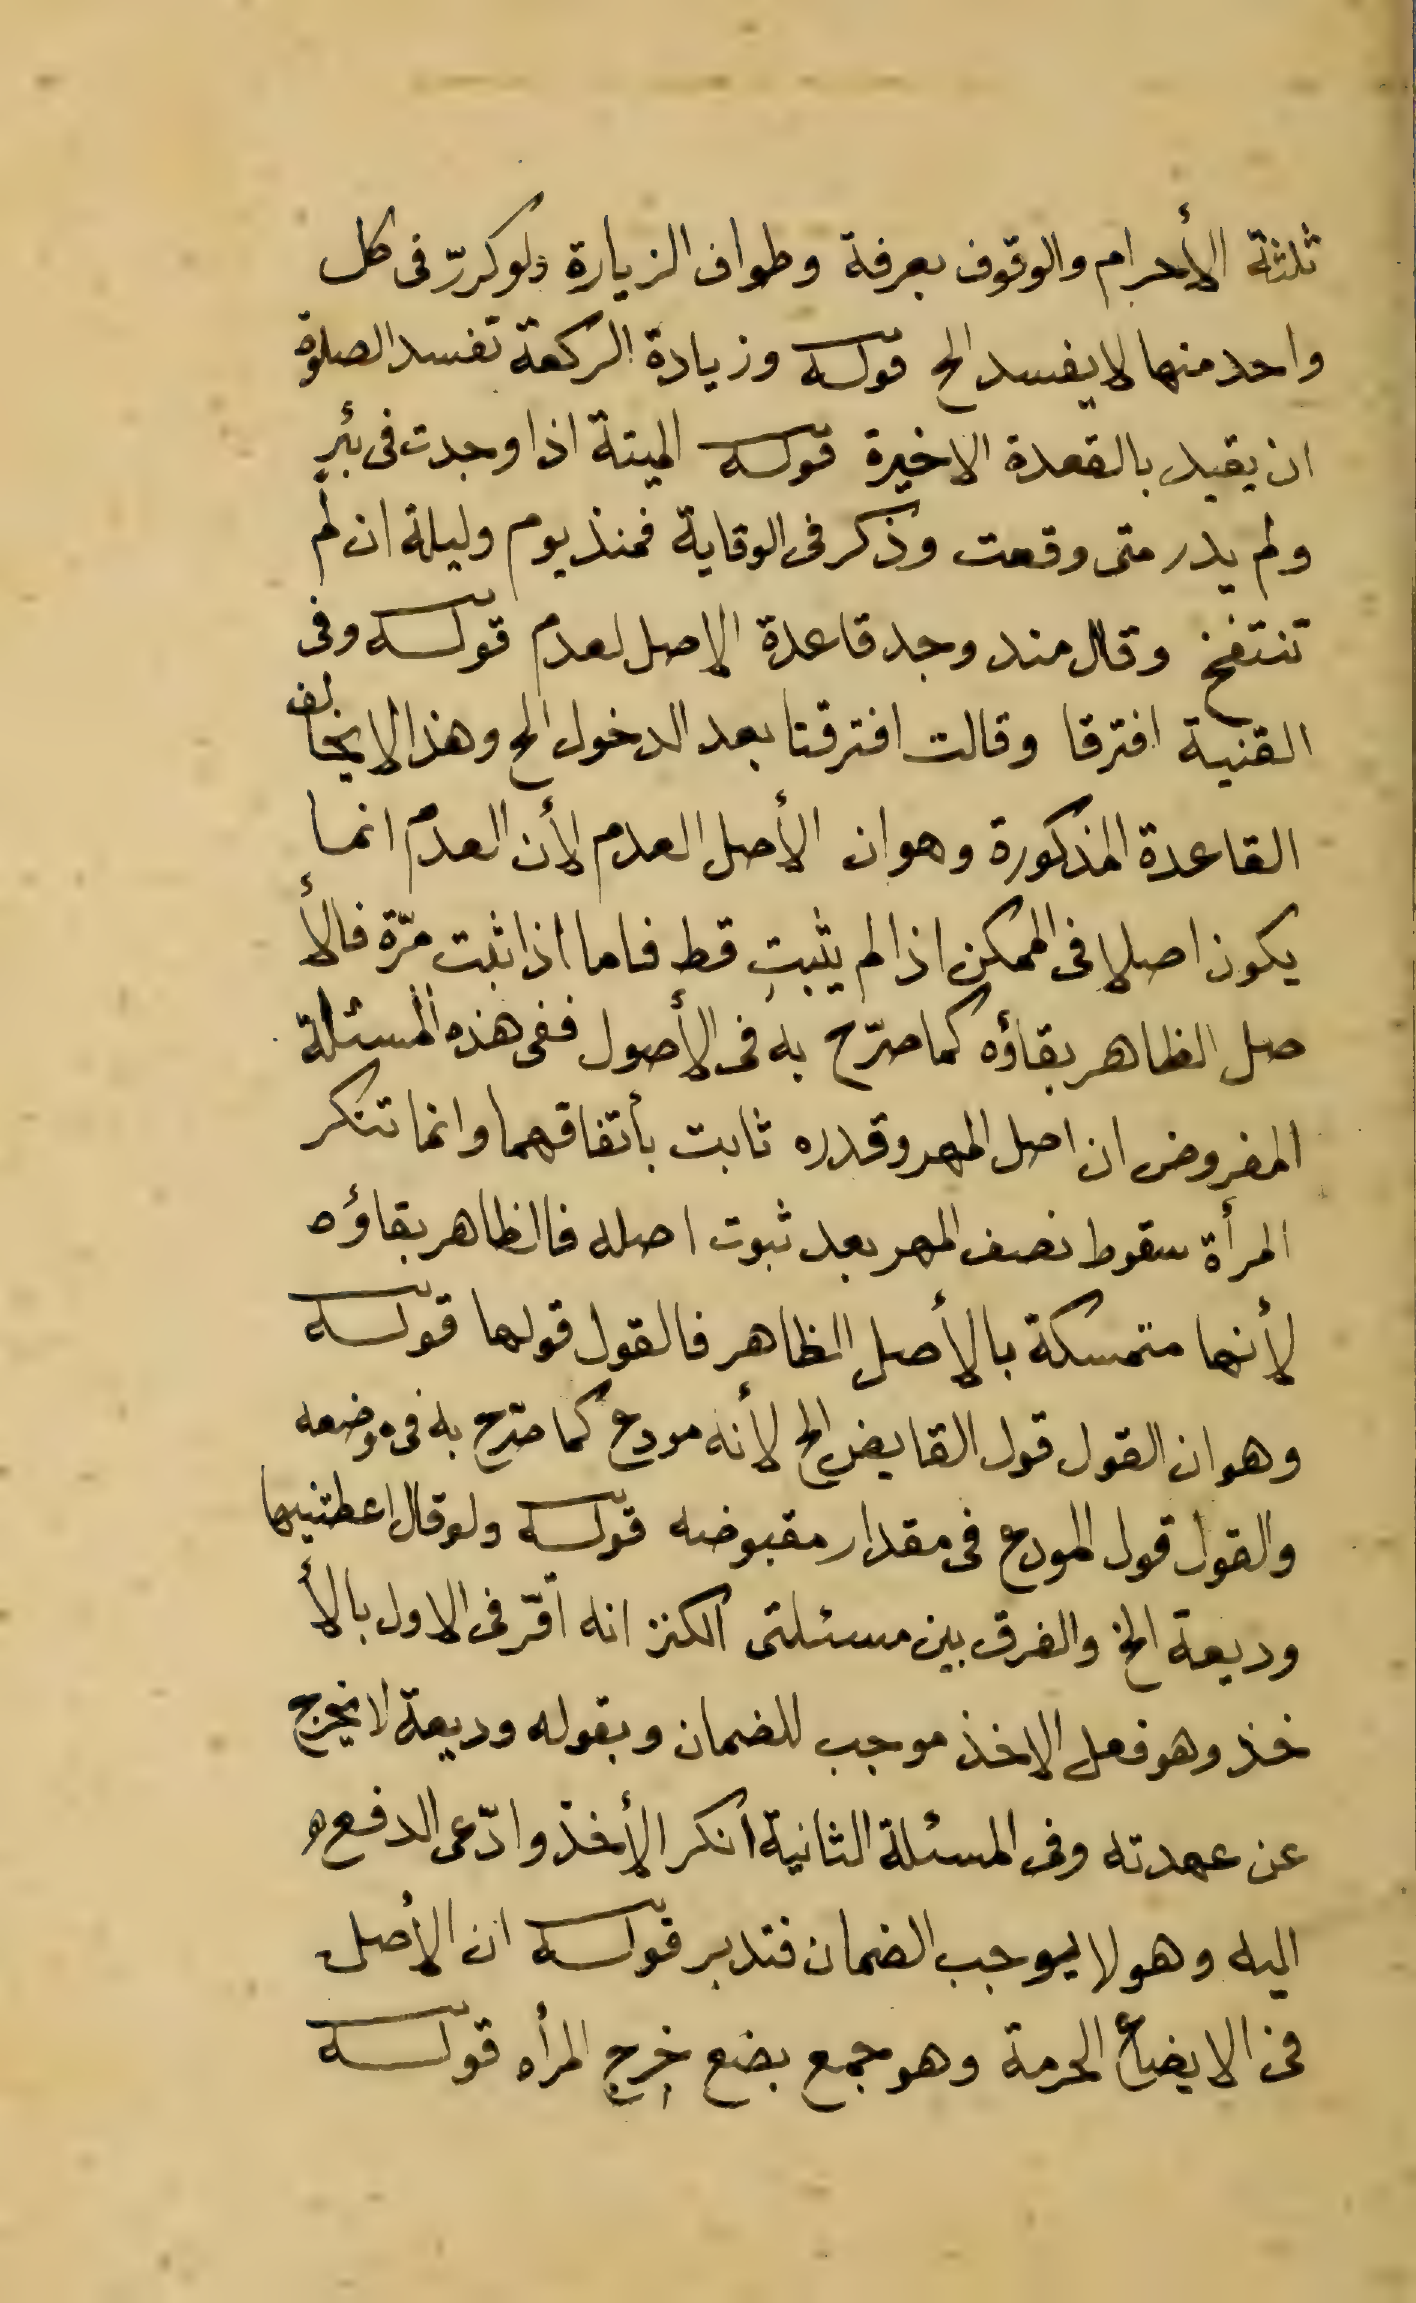 ثلثة الأحرام والوقوف بعرفة وطواف الزيارة ولو كررّ فى كل
واحد منها لا يفسد الخ قوله وزيادة الركعة تفسد الصلوة
ان يقيد بالقعدة الاخيرة قوله الميتة اذا وجدت فى بئرٍ
ولم يدر متى وقعت وذكر فى الوقاية فمنذ يوم وليلة ان لم
تنتفخ وقال منذ وجد قاعدة الاصل لعدم قوله وفى
القنية افترقا وقالت افترقنا بعد الدخول الخ وهذا لا يخالف
القاعدة المذكورة وهو ان الأصل العدم لأن العدم انما
يكون اصلا فى الممكن اذا لم يثبتِ قط فاما اذا ثبت مرّة فالأ
صل الظاهر بقاؤه كما صرّح به فى الأصول ففى هذه المسئلة
المفروض ان اصل المهر وقدره ثابت بأتفاقهما وانما تنكر
المرأة سقوط نصف المهر بعد ثبوت اصله فالظاهر بقاؤه
لأنها متمسكة بالأصل الظاهر فالقول قولها قوله
وهو ان القول قول القابض الخ لأنه مودع كما صرّح به فى موضعه
والقول قول المودع فى مقدار مقبوضه قوله ولو قال اعطتنيها
وديعة الخ والفرق بين مسئلتى الكنز انه اقرّ فى الاول بالأ
خذ وهو فعل الاخذ موجب للضمان وبقوله وديعة لا يخرج
عن عهدته وفى المسئلة الثانية انكر الأخذ وادّعى الدفع
اليه وهو لا يوجب الضمان فتدبر قوله ان الأصل
فى الا بضاع الحرمة وهو جمع بضع خرج المرأه قوله